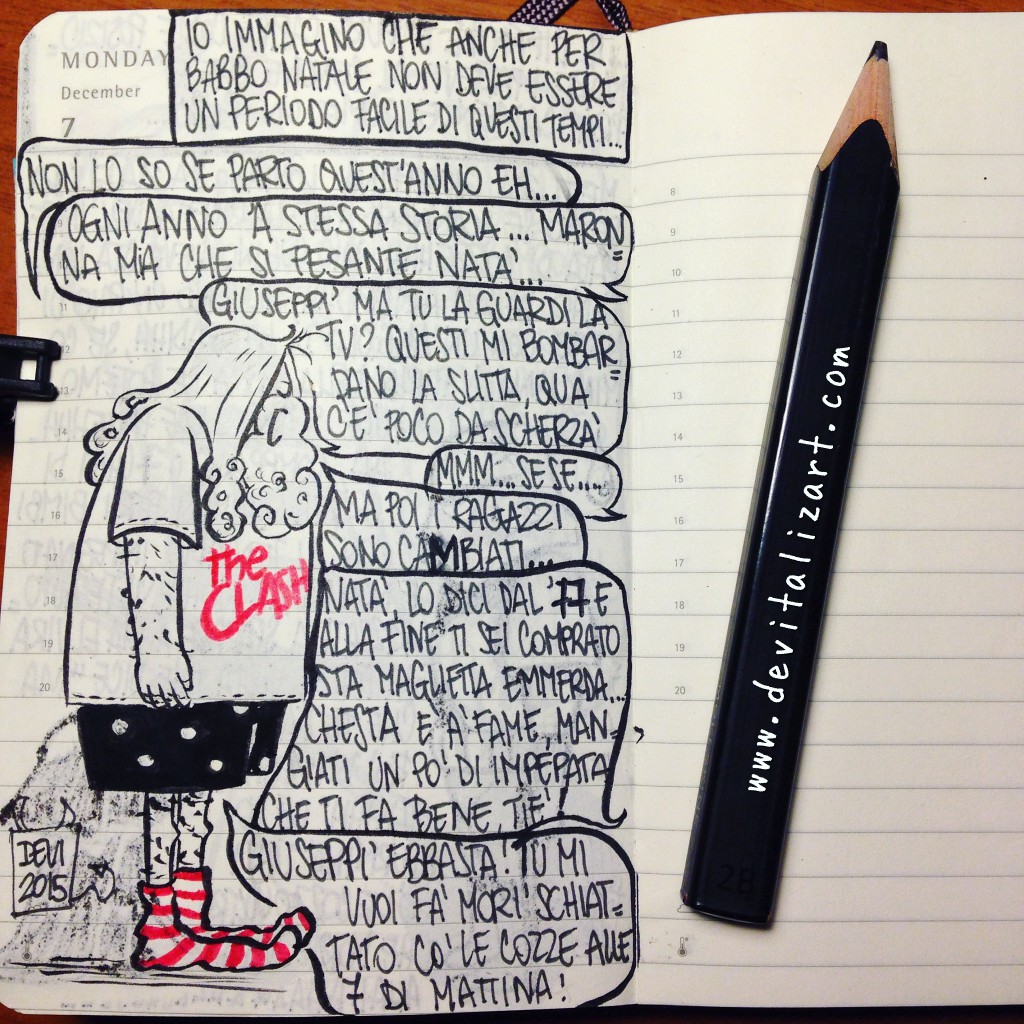 MONDAY
December
7
IO IMMAGINO CHE ANCHE PER
BABBO NATALE NON DEVE ESSERE
UN PERIODO FACILE DI QUESTI TEMPI...
NON LO SO SE PARTO QUEST'ANNO EH...
OGNI ANNO 'A STESSA STORIA... MARON=
NA MIA CHE SI PESANTE NATA'...
GIUSEPPI' MA TU LA GUARDI LA
TV? QUESTI MI BOMBAR=
DANO LA SLITTA, QUA
C'E' POCO DA SCHERZA'
MMM...SESE....
MA POI I RAGAZZI
SONO CAMBIATI...
NATA', LO DICI DAL '77 E
ALLA FINE TI SEI COMPRATO
STA MAGLIETTA EMMERDA...
CHESTA E A' FAME, MAN=
GIATI UN PO' DI IMPEPATA
CHE TI FA BENE, TIE'
GIUSEPPI' EBBASTA! TU MI
VUOI FA' MORI' SCHIAT=
TATO CO' LE COZZE ALLE
7 DI MATTINA!
the
CLASH
DEVI
2015
11
12
13
14
15
16
17
18
19
20
8
9
10
11
12
13
14
15
16
17
18
19
20
www.devitalizart.com
2B